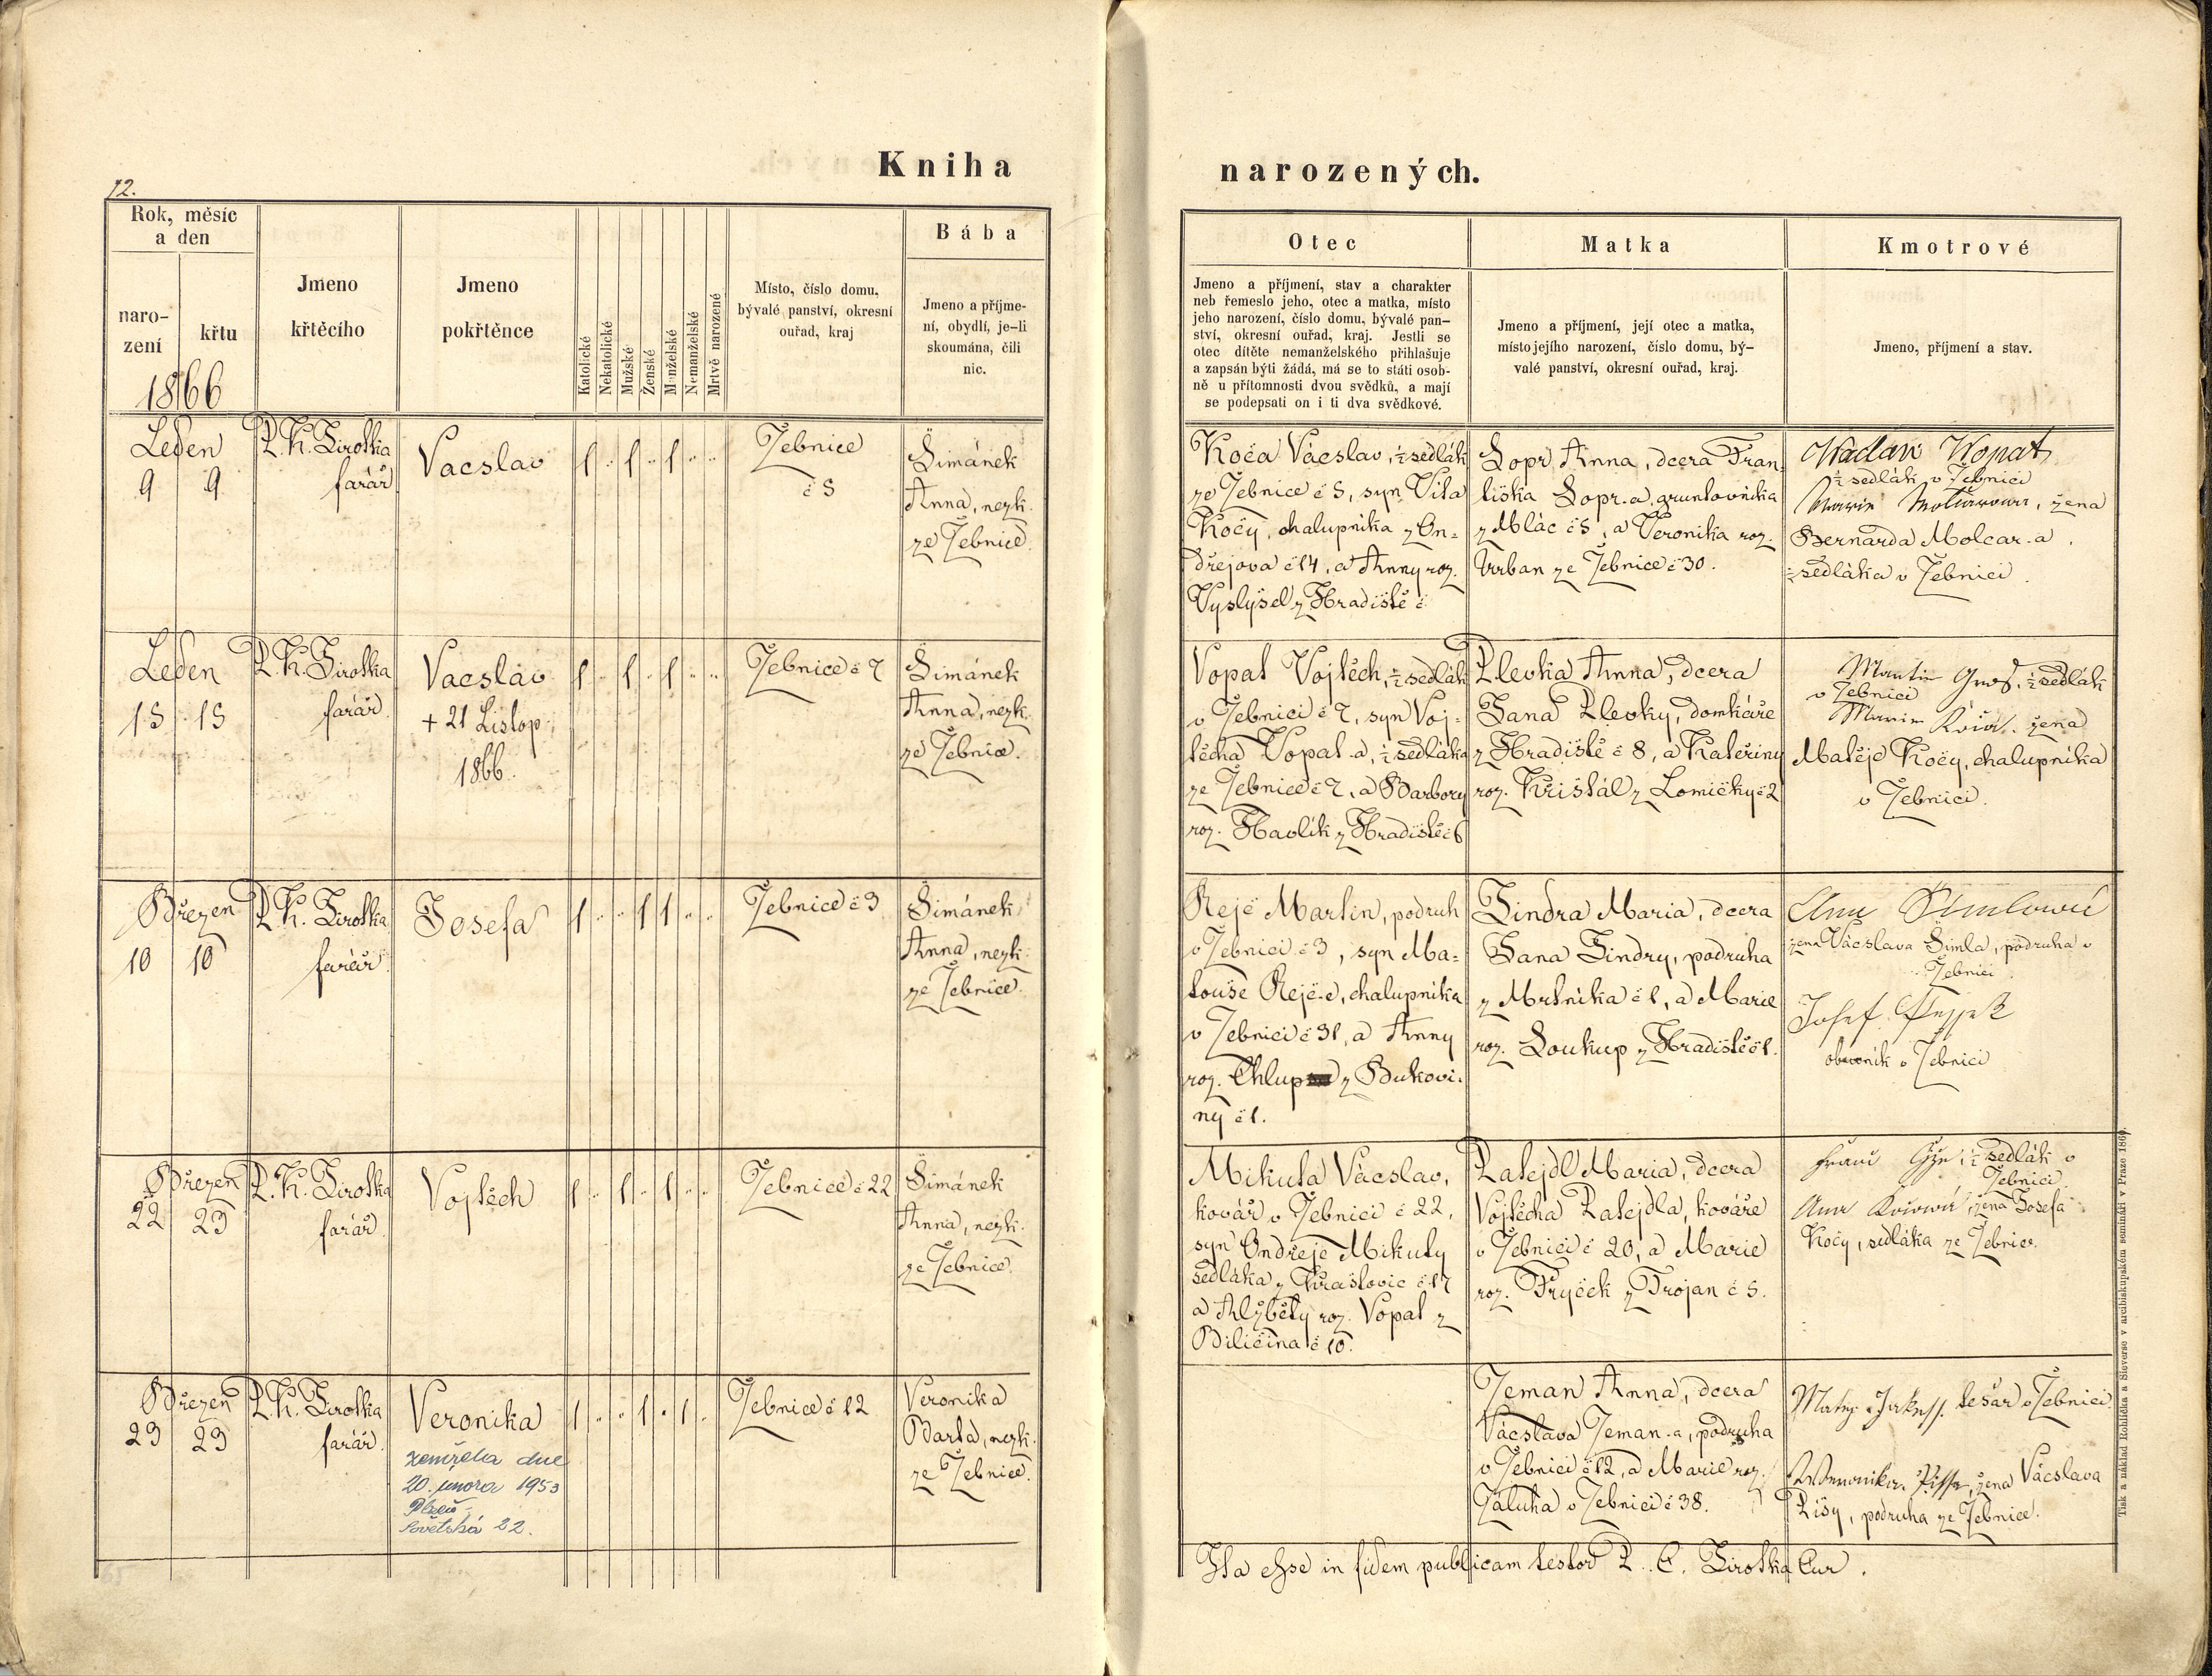 12.
Kniha narozených.
Rok, měsíc
a den
naro-
zení
křtu
1866
Jmeno
křtěcího
Jmeno
pokřtěnce
Katolické
Nekatolické
Mužské
Ženské
Manželské
Nemanželské
Mrtvě narozené
Místo, číslo domu,
bývalé panství, okresní
ouřad, kraj
Bába
Jmeno a příjme-
ní, obydlí, je-li
skoumána, čili
nic.
Otec
Jmeno a příjmení, stav a charakter
neb řemeslo jeho, otec a matka, místo
jeho narození, číslo domu, bývalé pan-
ství, okresní ouřad, kraj. Jestli se
otec dítěte nemanželského přihlašuje
a zapsán býti žádá, má se to státi osob-
ně u přítomnosti dvou svědků, a mají
se podepsati on i ti dva svědkové.
Matka
Jmeno a příjmení, její otec a matka,
místo jejího narození, číslo domu, bý-
valé panství, okresní ouřad, kraj.
Kmotrové
Jmeno, příjmení a stav.
Leden
9 9
P. K. Sirotka
farář
Vacslav
1 1 1
Žebnice
č 5
Šimánek
Anna, nezk.
ze Žebnice
Koča Vácslav, ½ sedlák
ze Žebnice č 5, syn Víta
Kočy, chalupníka z On-
dřejova č 14, a Anny roz.
Vyslyšel z Hradiště č
Sopr Anna, dcera Fran-
tiška Sopr-a gruntovníka
z Mlác č 5, a Veronika roz.
Urban ze Žebnice č 30.
Waclaw Wopat
½ sedlák v Žebnici
Marie, žena
Bernarda Molcar-a
½ sedláka v Žebnici.
Leden
15 15
P. K. Sirotka
farář
Vacsláv
+ 21 Listop.
1866.
1 1 1
Žebnice č 7
Šimánek
Anna, nezk.
ze Žebnice.
Vopat Vojtěch, ½ sedlák
v Žebnici č 7, syn Voj-
těcha Vopat-a, ½ sedláka
ze Žebnice č 7, a Barbory
roz. Havlík z Hradiště č 6
Plevka Anna, dcera
Jana Plevky, domkáře
z Hradiště č 8, a Kateřiny
roz. Křišťál z Lomičky č 2
Martin, ½ sedlák
v Žebnici
Marie, žena
Matěje Kočy, chalupníka
v Žebnici.
Březen
10 10
P. K. Sirotka
farář
Josefa
1 1 1
Žebnice č 3
Šimánek
Anna, nezk.
ze Žebnice.
Rejě Martin, podruh
v Žebnici č 3, syn Ma-
touše Rejě-e, chalupníka
v Žebnici č 31, a Anny
roz. Chlup z Bukovi-
ny č 1.
Jindra Maria, dcera
Jana Jindry, podruha
z Mrtníka č 1, a Marie
roz. Soukup z Hradiště č 1.
Ana Šimlowá
žena Vácslava Šimla, podruha v
Žebnici.
Josef
obecník v Žebnici
Březen
22 23
P. K. Sirotka
farář
Vojtěch
1 1 1
Žebnice č 22
Šimánek
Anna, nezk.
ze Žebnice.
Mikuta Vácslav,
kovář v Žebnici č 22,
syn Ondřeje Mikuty
sedláka z Kraslovic č 17
a Alžběty roz. Vopat z
Biličina č 10.
Ratejdl Maria, dcera
Vojtěcha Ratejdla, kováře
v Žebnici č 20, a Marie
roz. Fryček z Trojan č 5.
½ sedlák v
Žebnici
žena Josefa
Kočy, sedláka ze Žebnice.
Březen
23 23
P. K. Sirotka
farář.
Veronika
zemřela dne
20. února 1953
Plzeň,
Sovětská 22.
1 1 1
Žebnice č 12
Veronika
Barta, nezk.
ze Žebnice.
Zeman Anna, dcera
Vácslava Zeman-a, podruha
v Žebnici č 12, a Marie roz.
Záluha v Žebnici č 38.
tesař v Žebnici.
žena Vácslava
Pišy, podruha ze Žebnice.
Ita esse in fidem publicam testor P. C. Sirotka Cur.
Tisk a náklad Rohlíčka a Sieverse v arcibiskupském semináři v Praze 1860.